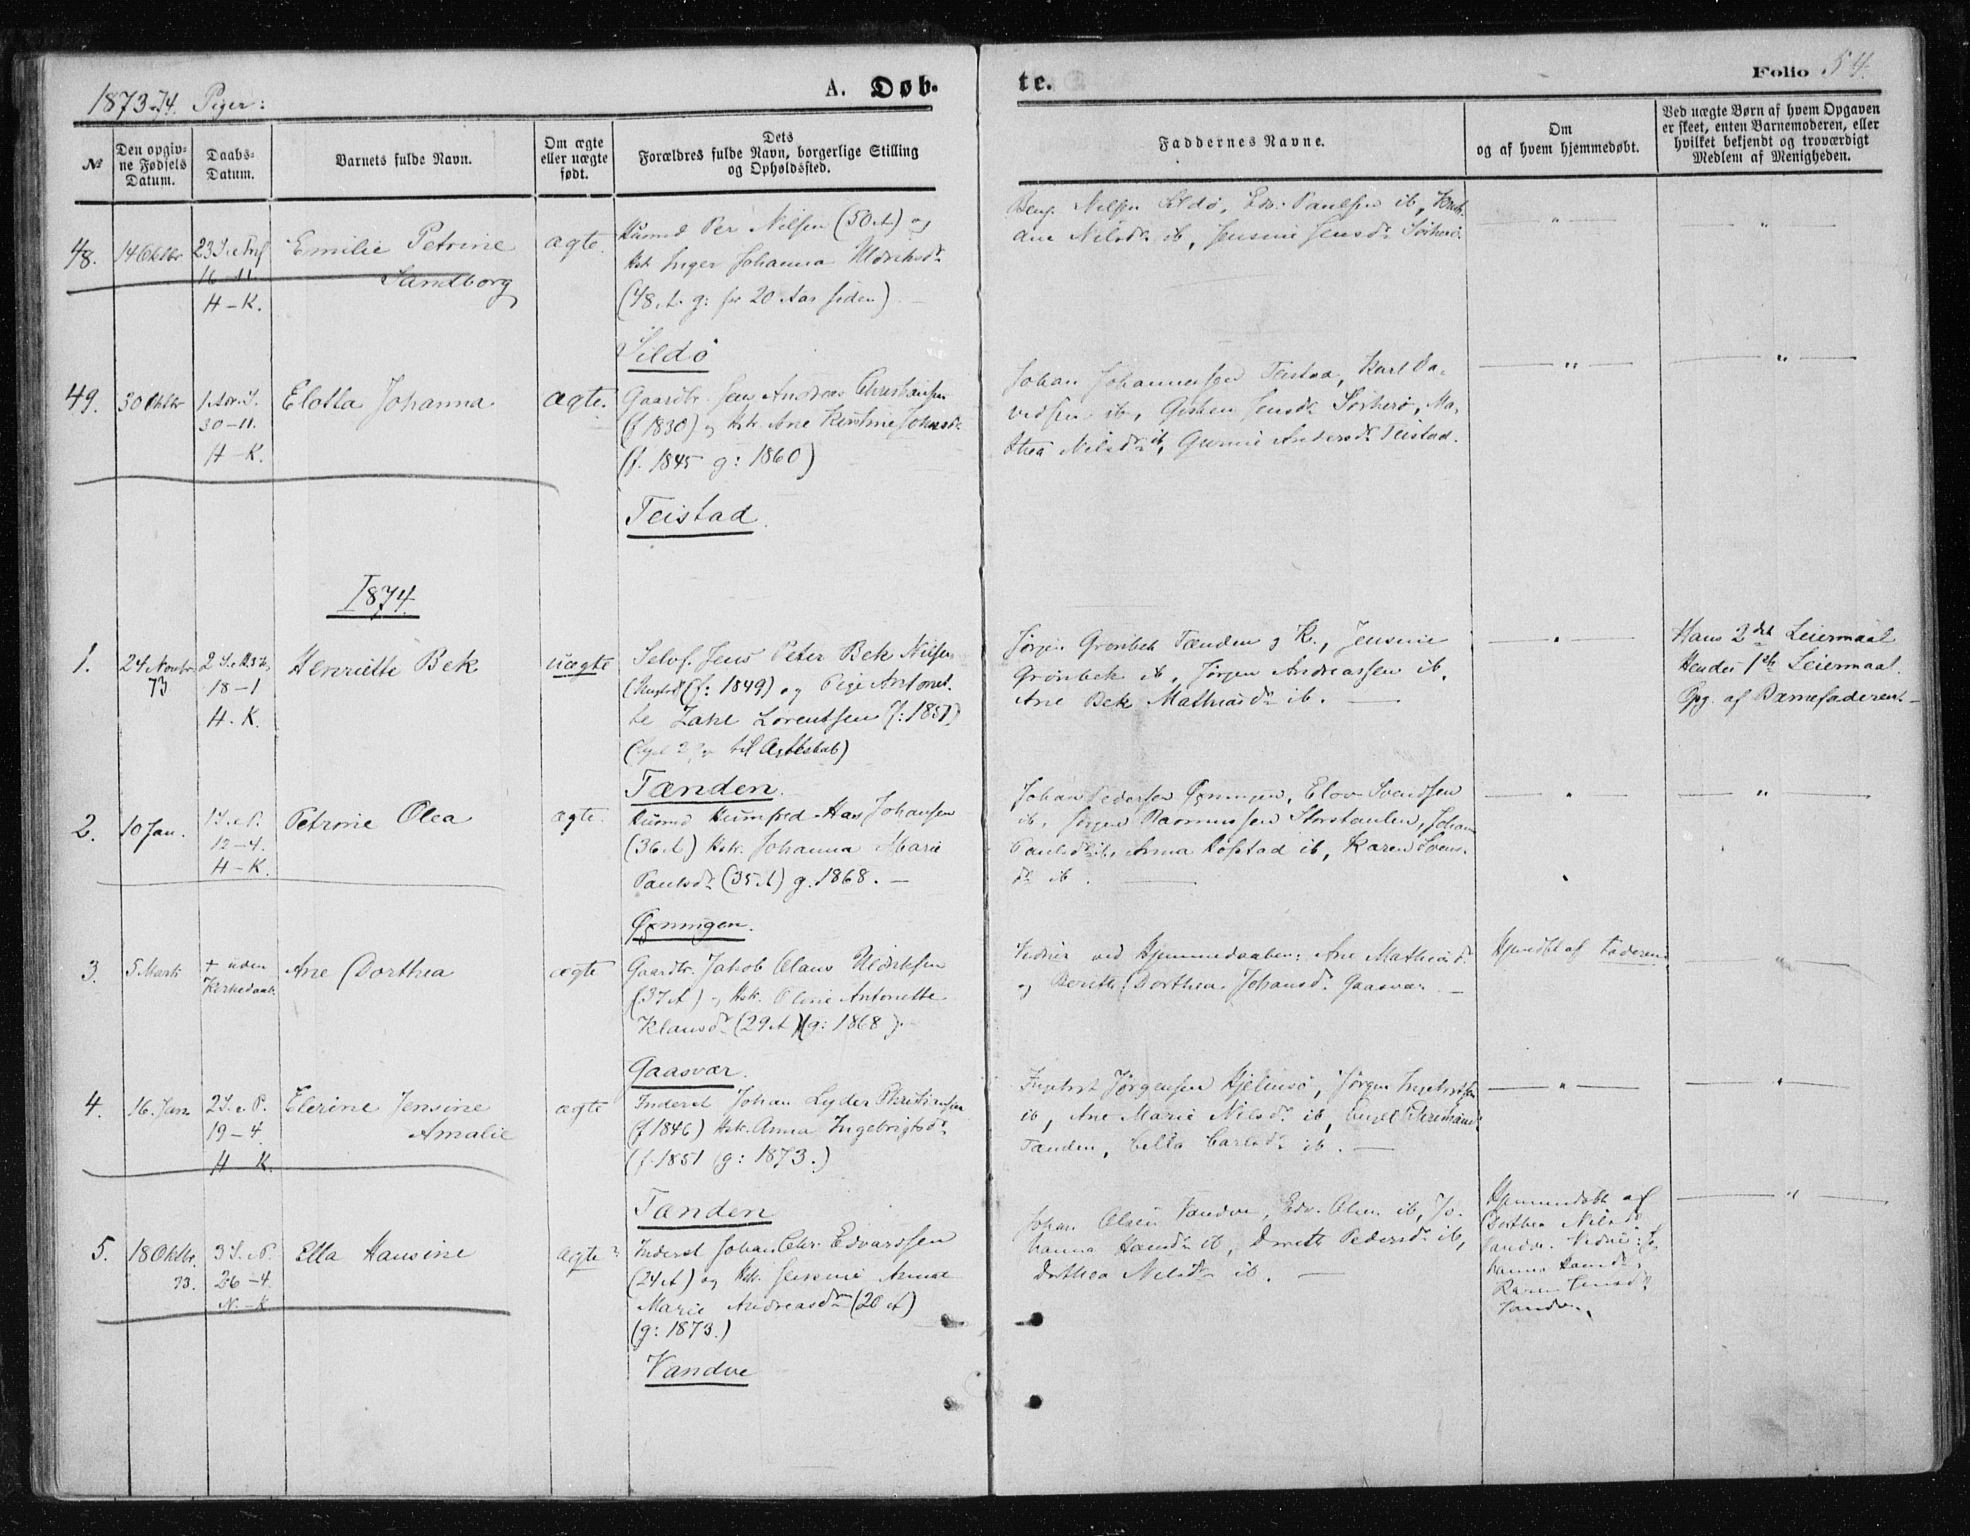 1873-74. Piger:
A. Døb-
te.
Folio 54.
№
Den opgiv-
ne Fødsels
Datum.
Daabs-
Datum.
Barnets fulde Navn.
Om ægte
eller uægte
født.
Dets
Forældres fulde Navn, borgerlige Stilling
og Opholdssted.
Faddernes Navne.
Om
og af hvem hjemmedøbt.
Ved uægte Børn af hvem Opgaven
er skeet, enten Barnemoderen, eller
hvilket bekjendt og troværdigt
Medlem af Menigheden.
48.
14 Oktbr
16-11.
H-K.
Emilie Petrine
Sandborg
ægte.
Husmd Per Nilsen (50 A) og
Hst. Inger Johanna
(48 A. g: for 20 Aar siden)
Sildø
Nilsen Sildø, Edv. Paulsen ib,
ane Nilsdr ib, Jensine Jensdr Sörherö
49.
30 Oktbr
30-11.
H-K.
Elotta Johanna
ægte.
Gaardbr. Jens Andreas Christiansen
(f 1830) og Hst. Ane Kirstine Johnsdr
(f. 1845 g: 1860)
Teistad.
Johan Johannessen Teistad, Karl Da-
vidsen ib, Jensdr Sörherö, Ma-
thea Nilsdr ib, Andersdr Teistad.
1874
1.
24 Novbr
73
18-1
H.K.
Henriette Bek
uægte
Selvf. Jens Peter Bek Nilsen
(Ungkl) (f: 1849) og Pige Antonet-
te Zahl Lorentsen f: 1851)
til Ægteskab)
Tænden.
Jørgen Grönbek Tænden g K., Jensine
Grönbek ib, Jörgen Andreassen ib,
Ane Bek Mathiasdr ib.
Hans 2det Leiermaal
Hendes 1ste Leiermaal.
Opg. af Barnefaderen
2.
10 Jan.
12-4.
H-K.
Petrine Olea
ægte.
Husmd Humfred Hans Johansen
(36 A) Hst. Johanna Marie
Paulsdr (35 A) g. 1868.
Øxningen.
Johan Pedersen Øxningen, Elov Svendsen
ib, Jörgen Rasmussen Storstaulen, Johan
Paulsdr ib, Anna ib, Karen Svens-
dr ib.
3.
5 Marts
† uden
Kirkedaab.
Ane Dorthea
ægte
Gaardbr. Jakob Claus Uldriksen
(37 A) og Hst. Oline Antonette
Klausdr (29 A) (g: 1868).
Gaasvær.
Vidner ved Hjemmedaaben: Ane Mathiasdr
og Berith Dorthea Johansdr Gaasvær.
Hjemdbt af Faderen
4.
16 Jan
2 S. e P.
19-4.
H K.
Elerine Jensine
Amalie
ægte
Inderst Johan Lyder Christiansen
(f 1846) Hst. Anna Ingebrigtsdr
(f. 1851 g: 1873.)
Tænden
Ingebrt Jørgensen Hjelmsö, Jörgen Ingebrtsen
ib, Ane Marie Nilsdr ib,
Tænden, Carlsdr ib.
5.
18 Oktbr.
73.
3 S. e P.
26-4
N.-K
Ella Hansine
ægte
Inderst Johan Chr. Edvardsen
(24 A) og Hst. Jensine Anna
Marie Andreasdr (20 A)
(g: 1873.)
Vandve
Johan Olsen Vandve, Edv. Olsen ib, Jo-
hanna Hansdr ib, Dorith Pedersdr ib,
Dorthea Nilsdr ib.
Hjemmedöbt af
Dorthea Nilsdr
Vandve. Vidner: Jo-
hanna Hansdr,
Karen Jensdr
Vandve.